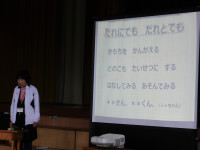 だれにでも だれとでも
かちちを かんがえる
どのこも たいせつに する
はなしてみる あそんでみる
＊＊さん、＊＊くん。